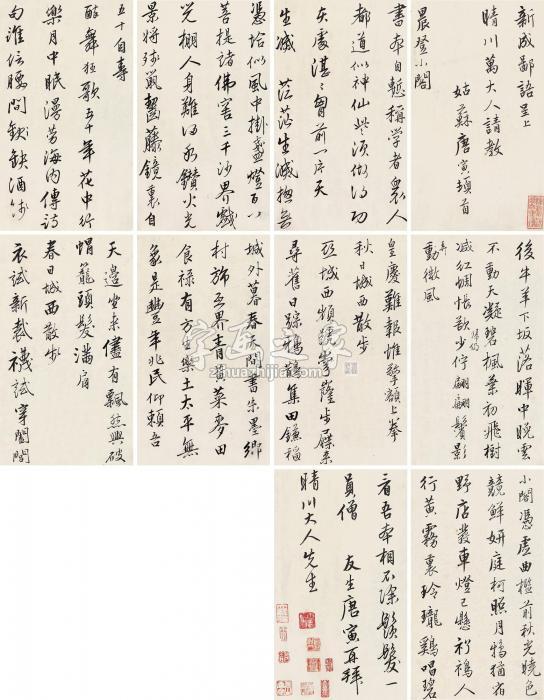 新成鄙語呈上
晴川萬大人請教
姑蘇唐寅頓首
晨登小閣
書本自慙稱學者衆人
都道似神仙些須做得功
夫處湛湛胷前一片天
生滅 茫茫生滅捴無
憑恰似風中掛盞燈百八
菩提諸佛寶三千沙界戲
光棚人身難得水鑽火光
景將 鼠齧藤鏡裏自
五十自壽
醉舞狂歌五十年花中行
樂月中眠漫勞海内傳詩
句誰信腰間缺酒錢
後牛羊下坂落暉中曉雲
不動天凝碧楓葉初飛樹
減紅惆悵欲少停翩翩鬢影
動微風
皇慶難報惟擎額上拳
秋日城西散步
城西頻繞步 步屧
尋舊日踪鴉鵲集田鐮稻
城外暮春天間書朱墨鄉
村飾 無界青黃菜麥田
食祿有方生樂土太平無
象是豐年兆民仰賴吾
天邊坐來儘有飄然興破
帽籠頭髮滿肩
春日城西散步
衣試新裁襪試穿閶闔
小閣憑虛曲檻前秋光曉色
競鮮妍庭柯照月鴉猶宿
野店發車燈已懸 人
行黃霧裏玲瓏鷄唱碧
看吾本相不 鬚髮一
員僧 友生唐寅再拜
晴川大人先生
字画之家
zihuazhijia.com